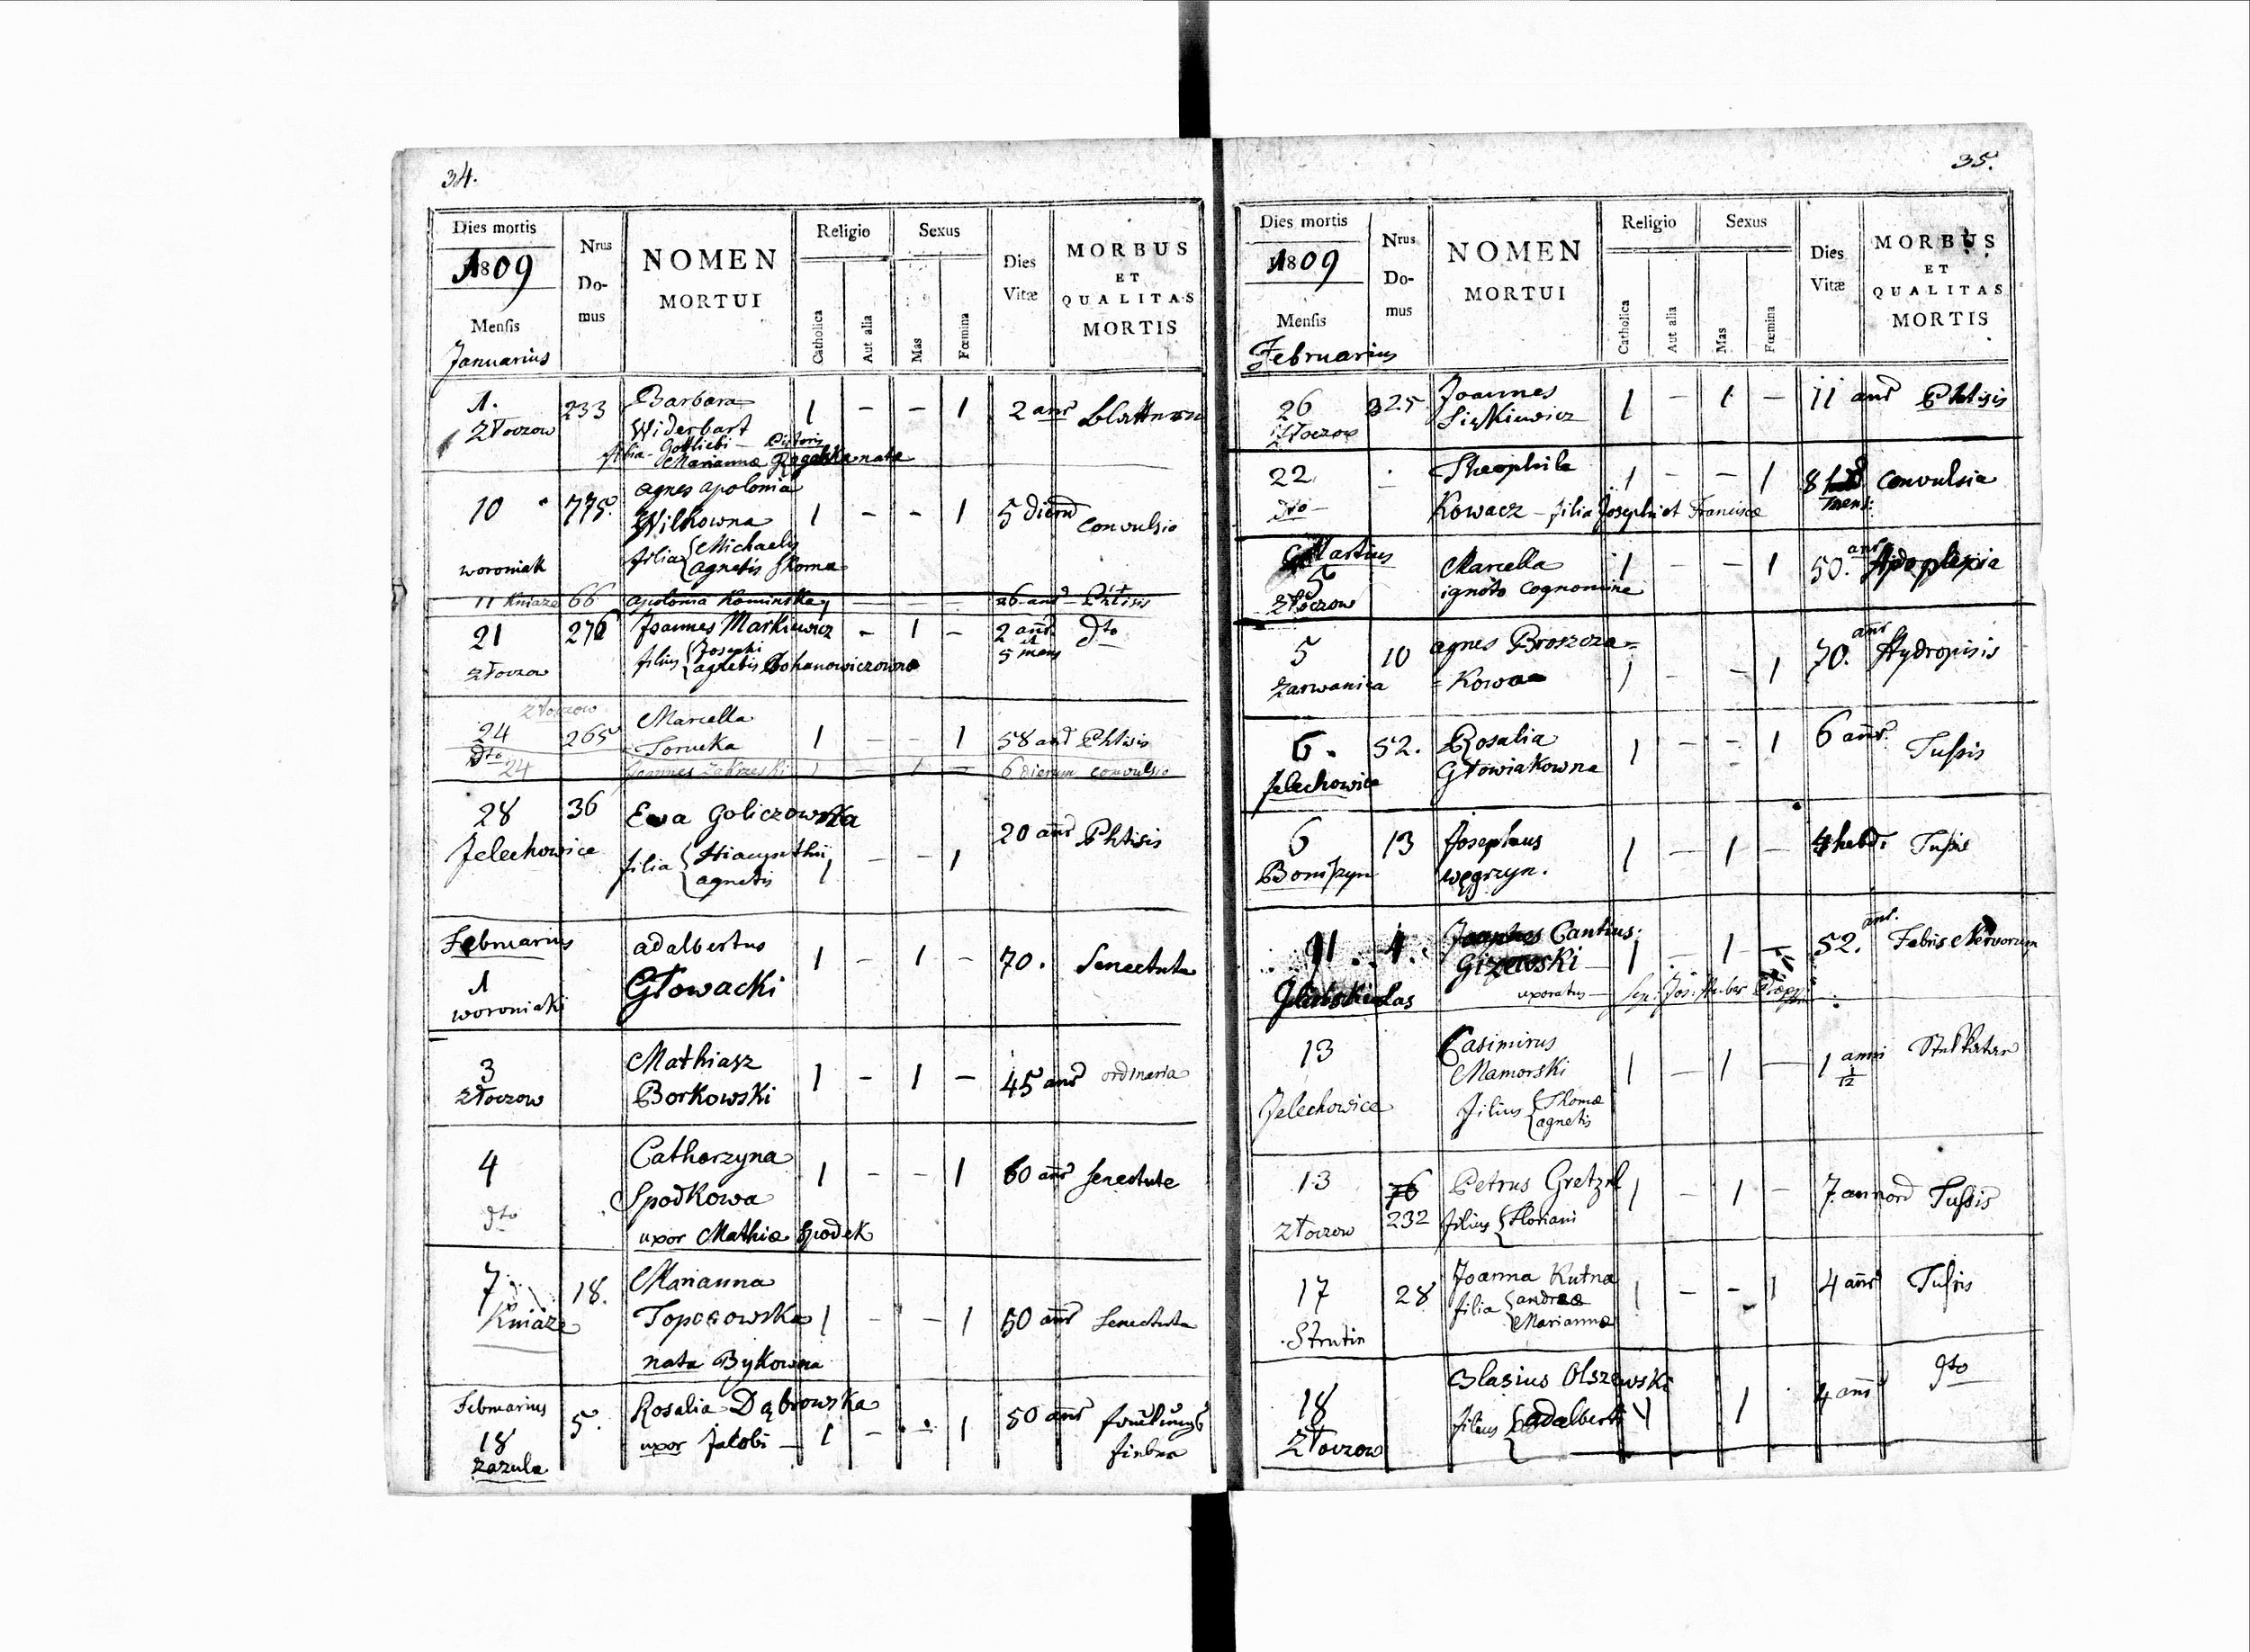 34.
Dies mortis
1809
Mensis
Januarius
Nrus
Do-
mus
NOMEN
MORTUI
Religio
Catholica
Aut alia
Sexus
Mas
Fœmina
Dies
Vitæ
MORBUS
ET
QUALITAS
MORTIS
1. 233 Barbara 1 - - 1 2 anr
Złoczow Widerbart
filia Gottliebi
Marianna nata
10 775. Agnes Apolonia
Wilkowna 1 - - 1 5 dierū convulsio
woroniak filia { Michaelis
Agnetis
11 Kniaze 66 Apolonia Kominska 1 - - - 26 anr Phtisis
21 276 Joannes Markiewicz - 1 - 2 anr. dto
et
5 mens
Złoczow filius { Josephi
Agnetis Bohanowiczowna
Złoczow
24 265 Marcella
Torucka 1 - - 1 58 anr Phtisis
dto 24 Joannes Zakrzeski 1 - 1 - 6 dierum convulsio
28 36 Ewa Goliczowska 20 anr Phtisis
Jelechowice filia { Hiacynthii 1 - - 1
Agnetis
Februarius Adalbertus
1 Głowacki 1 - 1 - 70. Senectute
woroniaki
3 Mathiasz 1 - 1 - 45 anr ordinaria
Złoczow Borkowski
4 Catharzyna 1 - - 1 60 anr Senectute
dto Spodkowa
uxor Mathiæ Spodek
7 18. Marianna
Kniaze Toporowska 1 - - 1 50 anr Senectute
nata Bykowna
Februarius 5. Rosalia Dąbrowska 50 anr
18 uxor Jakobi - 1 - - 1
Zazula
35.
Dies mortis
1809
Mensis
Februarius
Nrus
Do-
mus
NOMEN
MORTUI
Religio
Catholica
Aut alia
Sexus
Mas
Fœmina
Dies
Vitæ
MORBUS
ET
QUALITAS
MORTIS
26 325 Joannes 1 - 1 - 11 anr Phtisis
Złoczow
22 - Theophila 1 - - 1 8 convulsia
dto Kowacz - filia Josephi et Franciscæ mens:
Martius
5 Marcella 1 - - 1 50. anr Apoplexia
Złoczow ignoto cognomine
5 10 Agnes Broszcza= 70. anr Hydropisis
Zarwanica =Kowa 1 - - 1
6. 52. Rosalia 1 - - 1 6 anr. Tussis
Jelechowice Głowiakowna
6 13 Josephus 1 - 1 - 4 hebd. Tussis
Boniszyn węgrzyn.
11. 1. Joannes Cantius 52. anr. Febris Nervorum
Giżewski 1 - 1 -
uxoratus
13 Casimirus
Mamorski 1 - 1 - 1 anni
1/12
Jelechowice filius { Thomæ
Agnetis
13 76 Petrus Gretzel 1 - 1 - 7 annorū Tussis
Złoczow 232 filius { Floriani
17 28 Joanna Kutna 1 - - 1 4 anr Tussis
Strutin filia { Andreæ
Mariannæ
18 Blasius Olszewski 4 anr dto
Złoczow filius { Adalberti 1 1